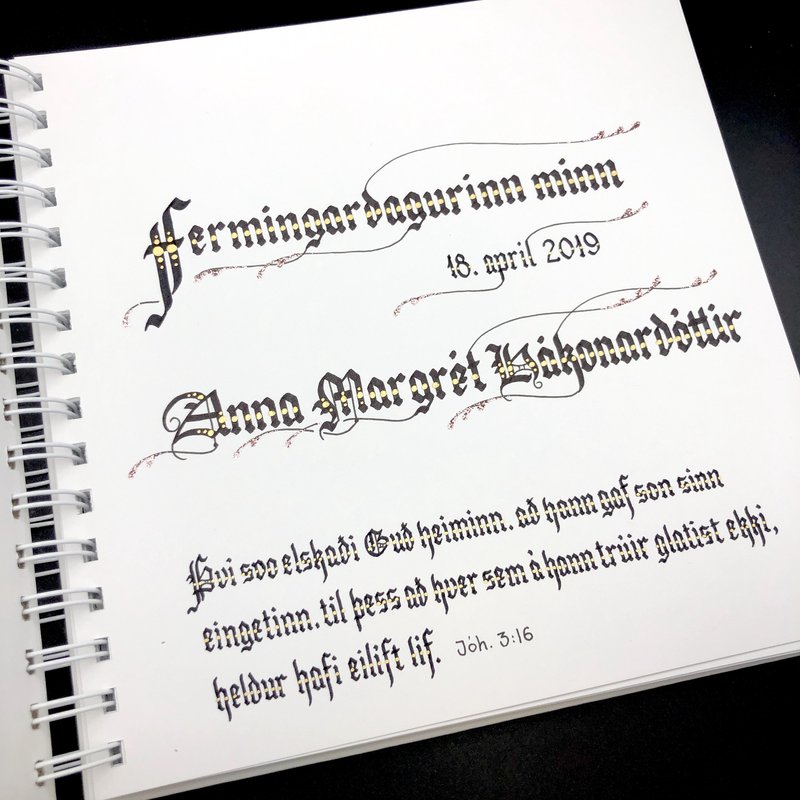 Fermingardagurinn minn
18. april 2019
Anna Margrét Hákonardóttir
Þvi svo elskaði Guð heiminn. að hann gaf son sinn
eingetinn. til þess að hver sem à hann trúir glatist ekki,
heldur hafi eilift lif. Jóh. 3:16